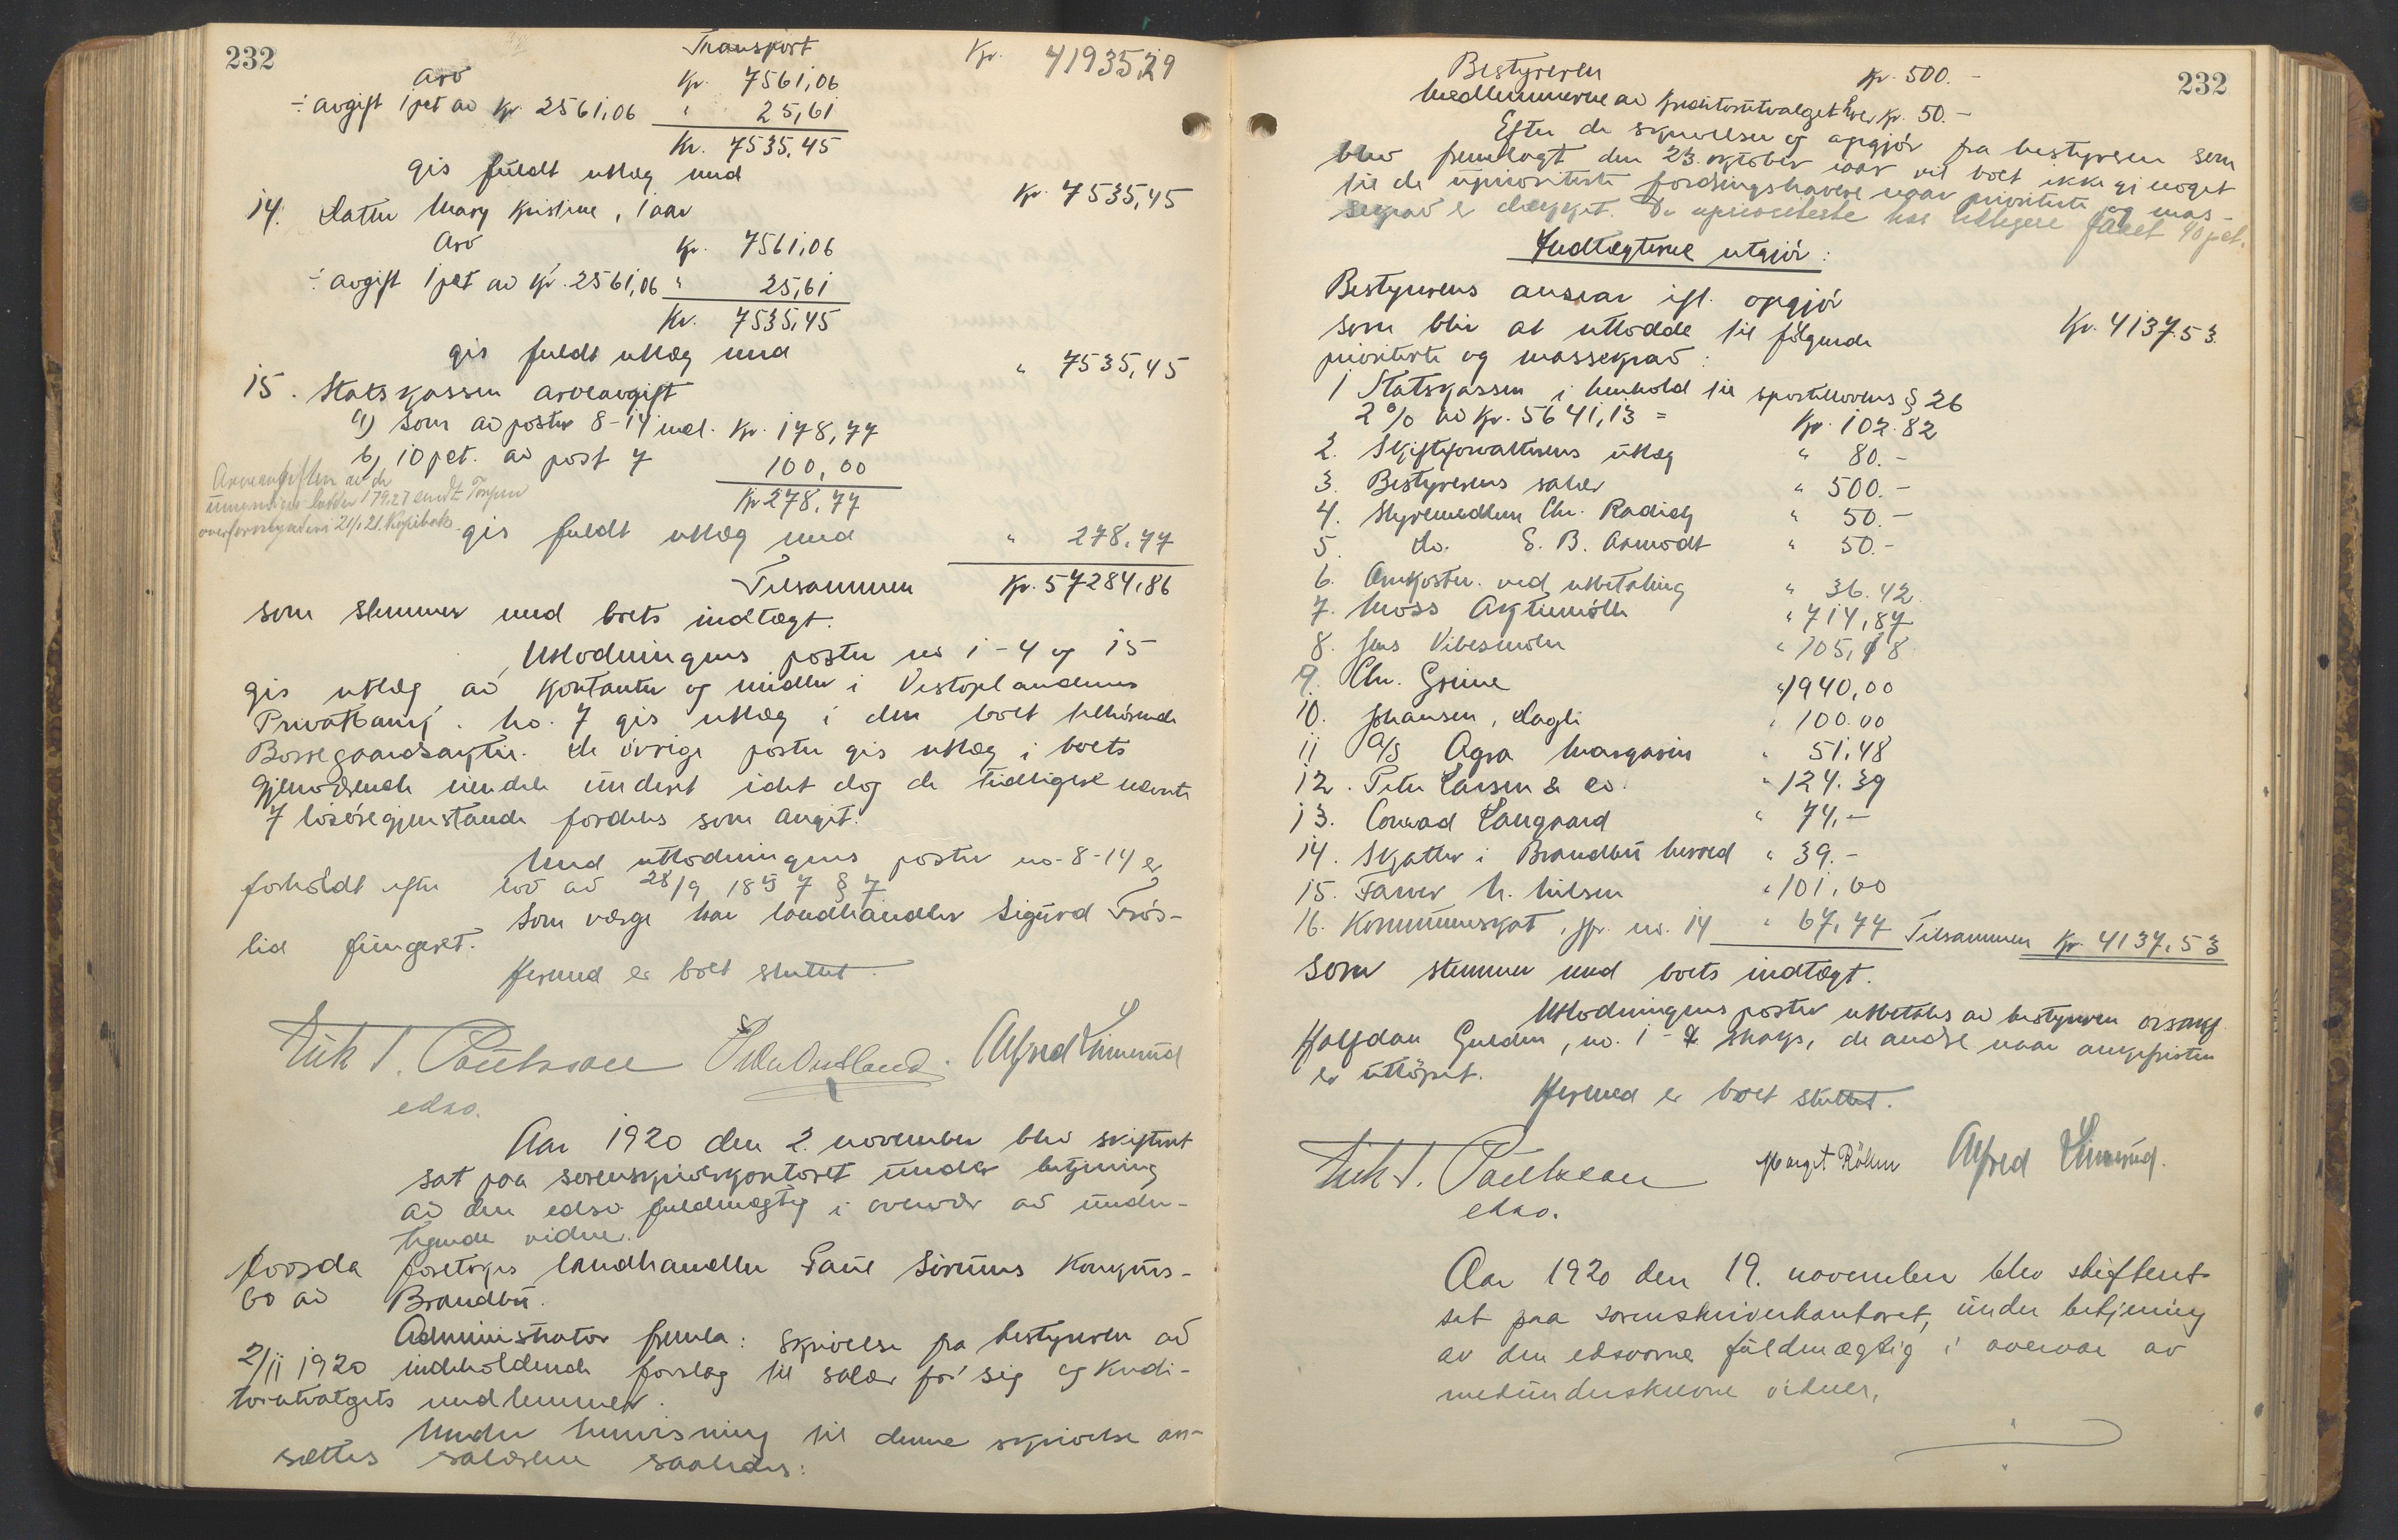 232
Transport Kr. 41935,29
Arv Kr. 7561,06
÷ avgift 1 pct av Kr. 2561,06 " 25,61
Kr. 7535,45
gis fuldt utlæg med Kr. 7535,45
14. Datter Mary Kristine, 1 aar
Arv Kr. 7561,06
÷ avgift 1 pct av Kr. 2561,06 " 25,61
Kr. 7535,45
gis fuldt utlæg med " 7535,45
15. Statskassen arveavgift
a) som av poster 8-14 incl. Kr. 178,77
b) 10 pct. av post 7 100,00
Kr 278,77
Arveavgiften av de
umyndiges lodder 179.27 sendt
overformynderi 21/1 21. Kopibok
gis fuldt utlæg med " 278,77
Tilsammen Kr. 57284,86
som stemmer med boets indtægt.
Utlodningens poster no 1-4 og 15
gis utlæg av kontanter og midler i Vestoplandenes
Privatbank. No. 7 gis utlæg i den boet tilhørende
Borregaardsaktie. De øvrige poster gis utlæg i boets
gjenværende midler under et idet dog de tidligere nævnte
7 løsøregjenstande fordeles som angit.
Med utlodningens poster no. 8-14 er
forholdt efter lov av 28/9 1857 § 7
Som værge har landhandler Sigurd Frøs-
lid fungeret.
Hermed er boet sluttet.
Alfred Limerud
edsv.
Aar 1920 den 2. november blev skifteret
sat paa sorenskriverkontoret under betjening
av den edsv. fuldmægtig i overvær av under-
tegnede vidner.
Hvorda foretokes landhandler Paul Sørums konkurs-
bo av Brandbu.
Administrator fremla: Skrivelse fra bestyreren av
2/11 1920 indeholdende forslag til salær for sig og kredi-
torutvalgets medlemmer.
Under henvisning til denne skrivelse an-
sættes salærene saaledes:
232
Bestyreren Kr. 500.-
Medlemmerne av kreditorutvalget hver Kr. 50.-
Efter de skrivelser og opgjør fra bestyreren som
blev fremlagt den 23. oktober iaar vil boet ikke gi noget
til de uprioriterte fordringshavere naar priorterte og mas-
sekrav er dækket. De upriorterte har tidligere faaet 40 pct.
Indtægterne utgjør:
Bestyrerens ansvar ifl. opgjør Kr. 4137.53
som blir at utlodde til følgende
prioriterte og massekrav:
1 Statskassen i henhold til sportellovens § 26
2% av Kr. 5641,13 = Kr. 102.82
2. Skifteforvalterens utlæg " 80.-
3. Bestyrerens salær " 500.-
4. Styremedlem Chr. Radich " 50.-
5. do. E. B. Armodt " 50.-
6. Omkostn. ved utbetaling " 36.42
7. Moss Aktiemølle " 714,87
8. Jens Vibesmolen " 105,18
9. Chr. Grime " 1940,00
10. Johansen, Dagli " 100.00
11 A/S Agra Margarin " 51,48
12. Peter Larsen & Co. " 124.39
13. Conrad Langaard " 74,-
14. Skatter i Brandbu herred " 39.-
15. Farver N. Nilsen " 101,60
16. Kommuneskat, jfr. no. 14 " 67,77 Tilsammen Kr. 4137.53
som stemmer med boets indtægt.
Utlodningens poster utbetales av bestyreren
Halfdan Gulden, no. 1-7 straks, de andre naar ankefristen
er utløpet.
Hermed er boet sluttet.
Margit Röhen Alfred Limerud.
edsv.
Aar 1920 den 19. november blev skifteret
sat paa sorenskriverkontoret, under betjening
av den edsvorne fuldmægtig i overvær av
medunderskrevne vidner,